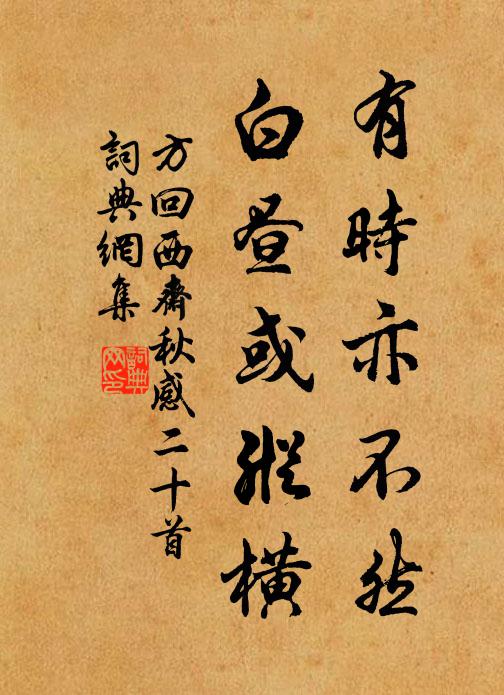 有時亦不然
白昼或縱橫
方回西齋秋感二十首
詞典網集
詞典网印